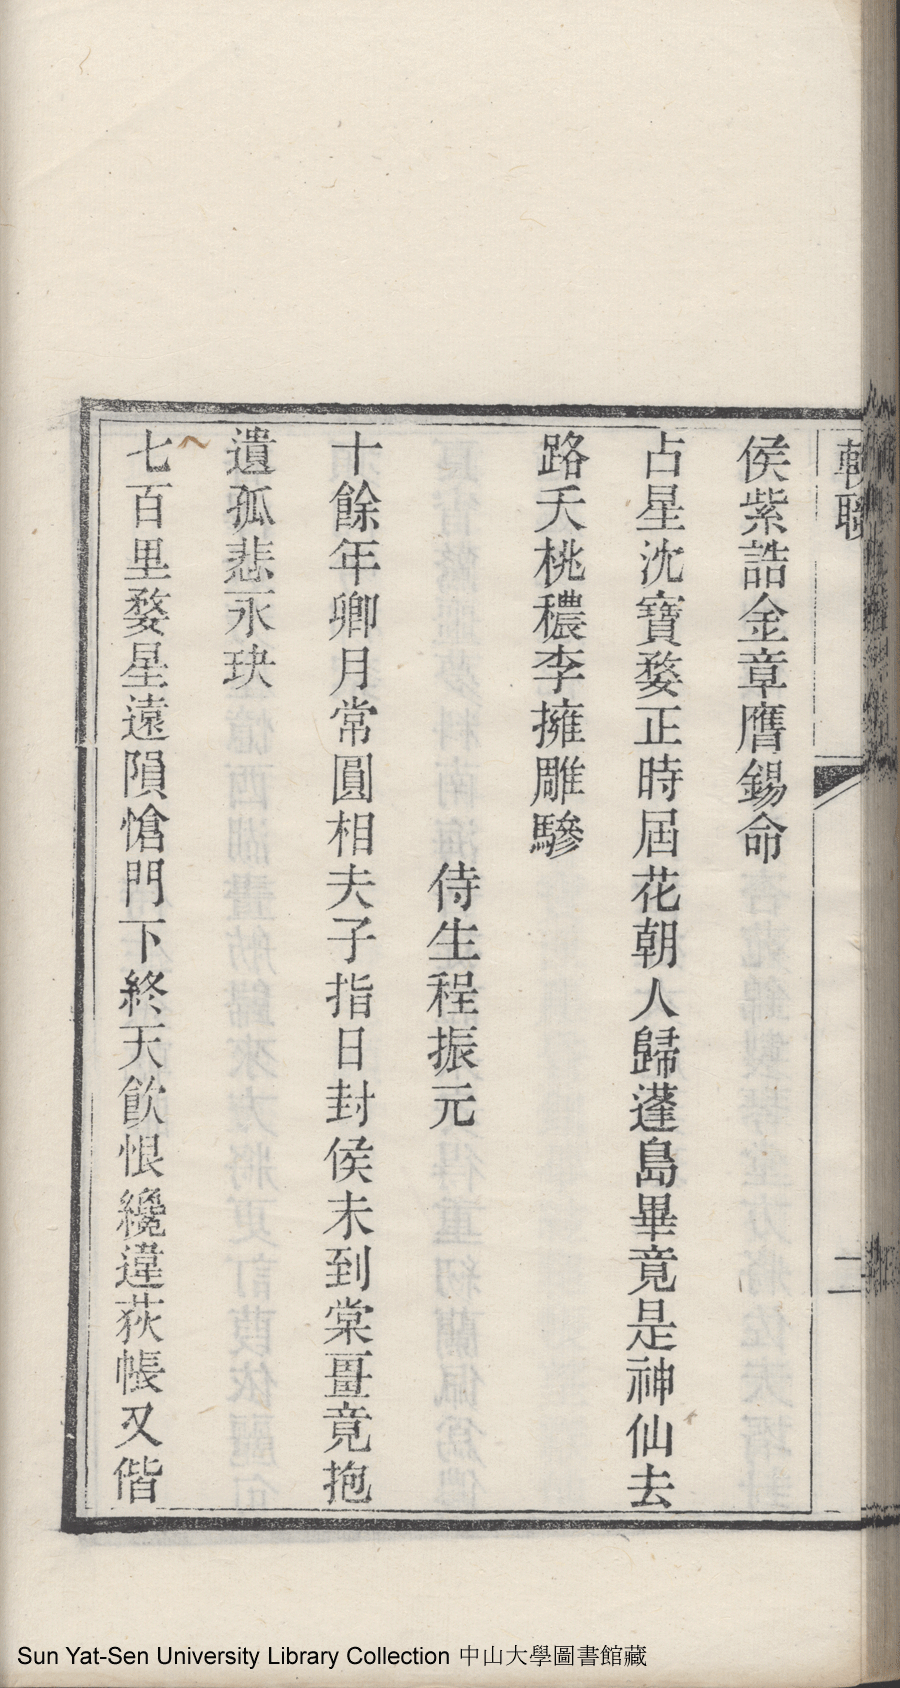 輓聯
二
侯紫誥金章膺錫命
占星沈寶婺正時屆花朝人歸蓬島畢竟是神仙去
路夭桃穠李擁雕驂
侍生程振元
十餘年卿月常圓相夫子指日封侯未到棠畺竟抱
遺孤悲永玦
七百里婺星遠隕愴門下終天飲恨纔違荻帳又偕
Sun Yat-Sen University Library Collection 中山大學圖書館藏